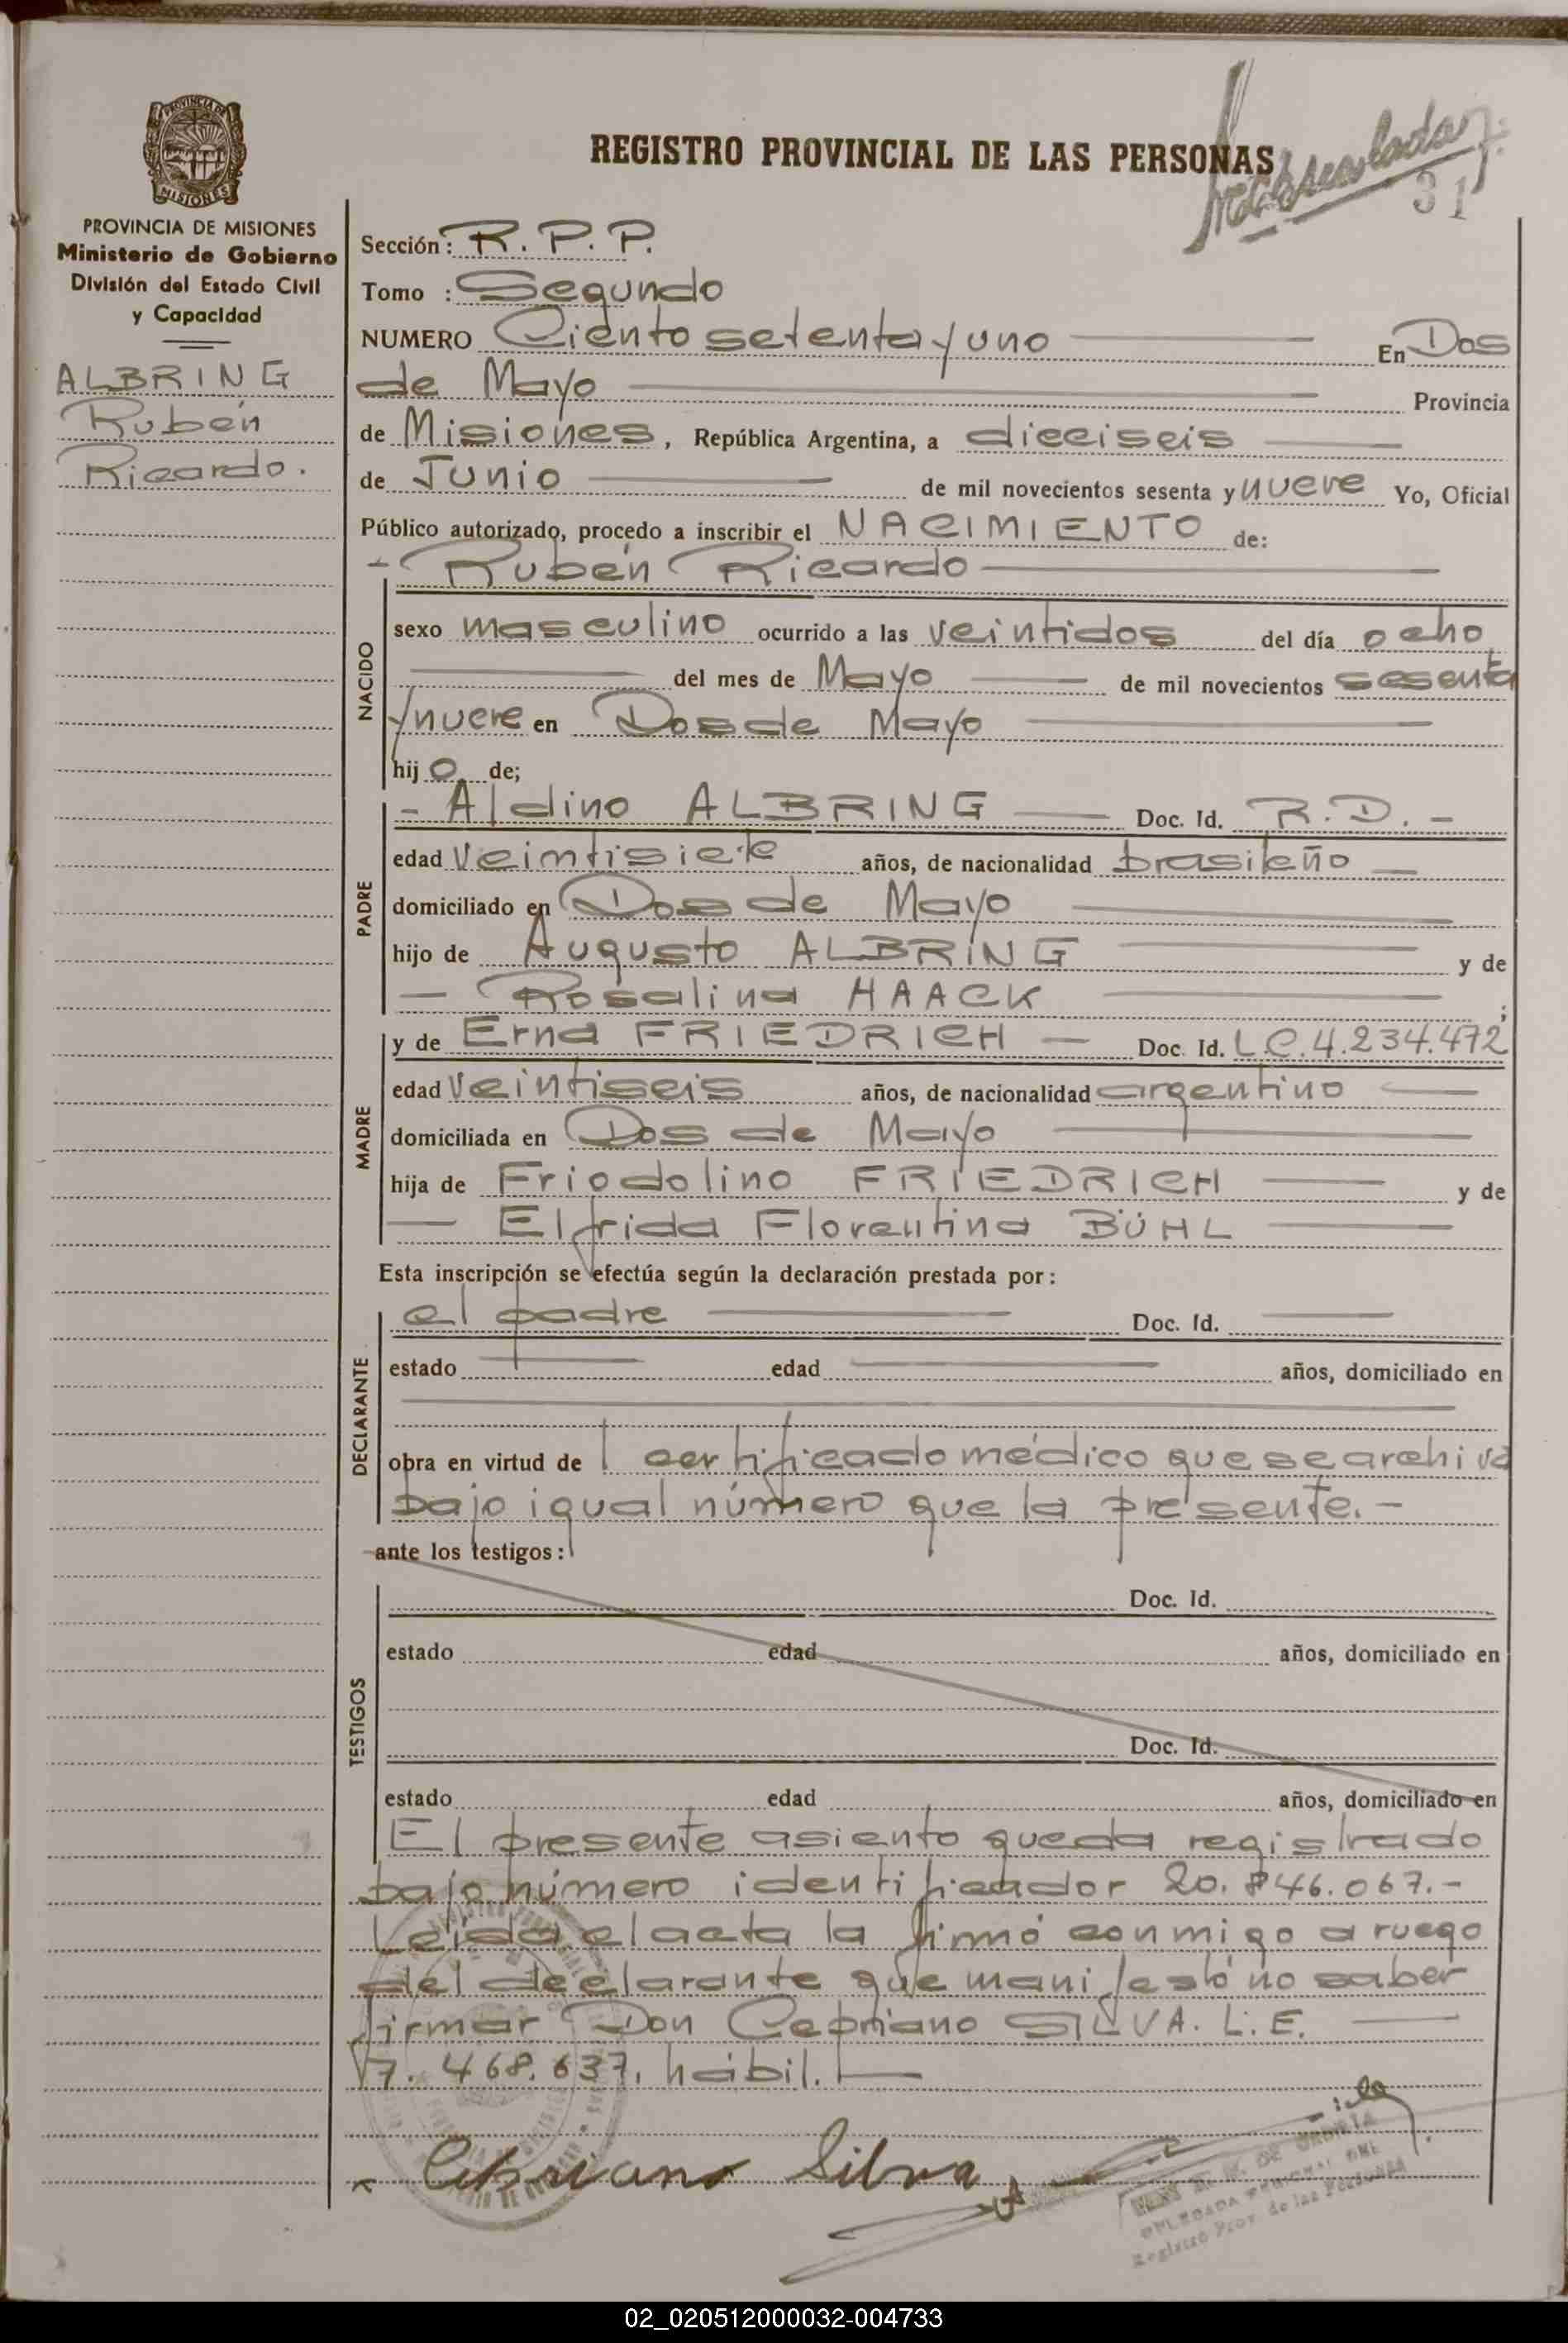 PROVINCIA DE
MISIONES
PROVINCIA DE MISIONES
Ministerio de Gobierno
División del Estado Civil
y Capacidad
ALBRING
Rubén
Ricardo.
REGISTRO PROVINCIAL DE LAS PERSONAS
31
Sección: R. P. P.
Tomo : Segundo
NUMERO Ciento setenta y uno En Dos
de Mayo Provincia
de Misiones, República Argentina, a dieciseis
de Junio de mil novecientos sesenta y nueve Yo, Oficial
Público autorizado, procedo a inscribir el NACIMIENTO de:
- Rubén Ricardo
NACIDO
sexo masculino ocurrido a las veintidos del día ocho
del mes de Mayo de mil novecientos sesenta
y nueve en Dos de Mayo
hij o de;
PADRE
- Aldino ALBRING Doc. Id. R. D. -
edad veintisiete años, de nacionalidad brasileño
domiciliado en Dos de Mayo
hijo de Augusto ALBRING y de
Rosalina HAACK ;
MADRE
y de Erna FRIEDRICH Doc. Id. L.C. 4.234.472
edad veintiseis años, de nacionalidad argentino
domiciliada en Dos de Mayo
hija de Friodolino FRIEDRICH y de
Elfrida Florentina BÜHL
Esta inscripción se efectúa según la declaración prestada por:
DECLARANTE
el padre Doc. Id.
estado edad años, domiciliado en
obra en virtud de l certificado médico que se archiva
bajo igual número que la presente. -
ante los testigos:
TESTIGOS
Doc. Id.
estado edad años, domiciliado en
Doc. Id.
estado edad años, domiciliado en
El presente asiento queda registrado
bajo número identificador 20.846.067. -
Leída el acta la firmó conmigo a ruego
del declarante que manifestó no saber
firmar Don Cepriano SILVA. L. E.
7. 468. 637, hábil.
Cepriano Silva
DELEGADA REGIONAL DEL
Registro Prov. de las Personas
02_020512000032-004733